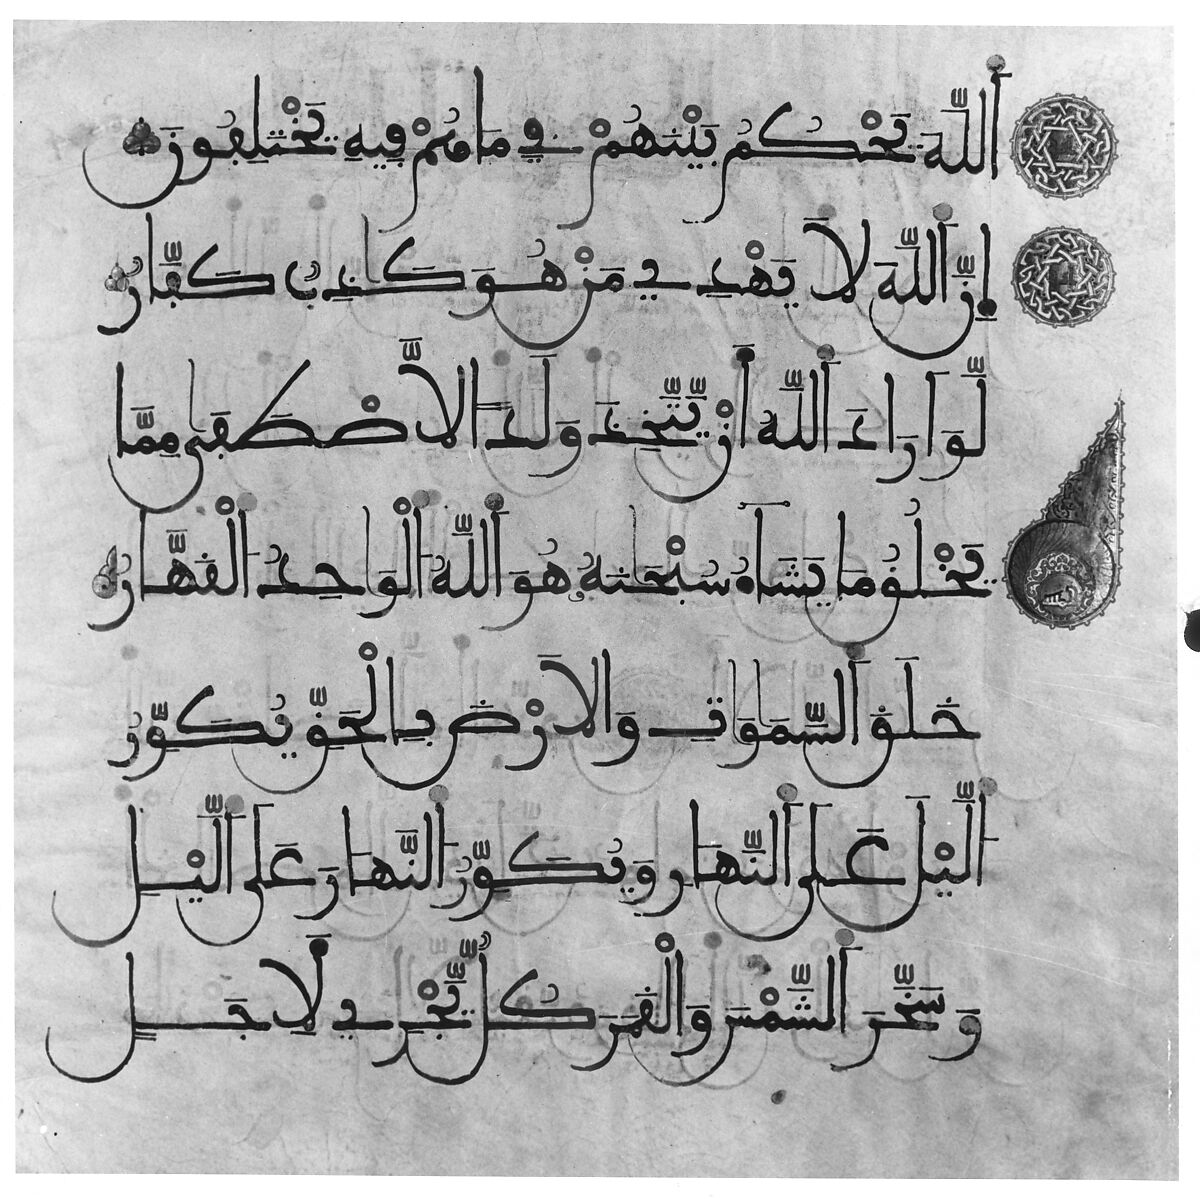 اَللَّهَ يَحْكُمُ بَيْنَهُمْ فِي مَا هُمْ فِيهِ يَخْتَلِفُونَ
إِنَّ اَللَّهَ لَا يَهْدِي مَنْ هُوَ كَٰذِبٌ كَفَّارٌ
لَّوَ اَرَادَ اَللَّهُ أَنْ يَّتَّخِذَ وَلَداً لَّاصْطَفَىٰ مِمَّا
يَخْلُقُ مَا يَشَآءُ سُبْحَٰنَهُ هُوَ اَللَّهُ اَلْوَٰحِدُ اَلْقَهَّارُ
خَلَقَ اَلسَّمَٰوَٰتِ وَالَارْضَ بِالْحَقِّ يُكَوِّرُ
اَلَّيْلَ عَلَى اَلنَّهَارِ وَيُكَوِّرُ اَلنَّهَارَ عَلَى اَلَّيْلِ
وَسَخَّرَ اَلشَّمْسَ وَالْقَمَرَ كُلٌّ يَّجْرِي لَأَجَلٍ